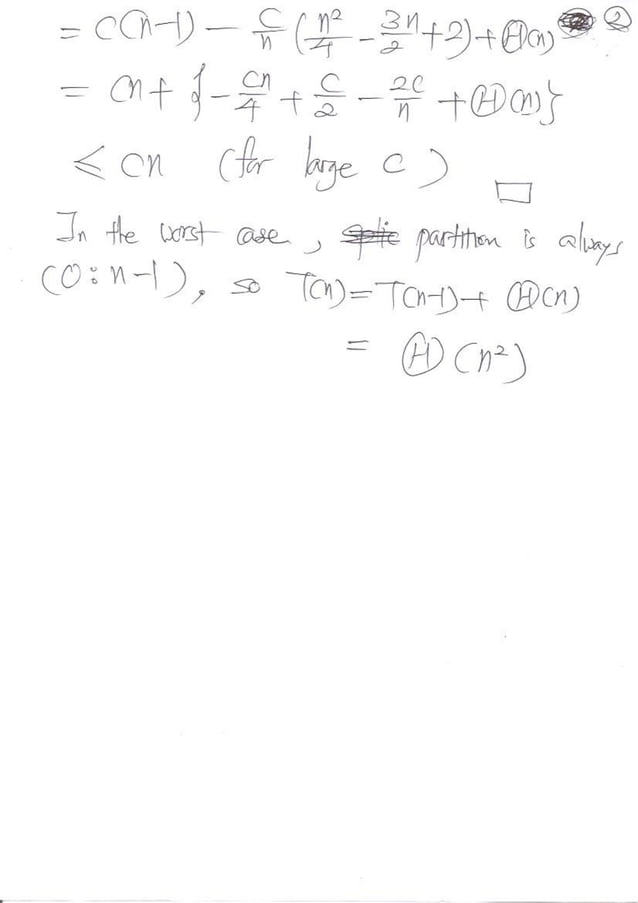 = C(n-1) - C/n (n²/4 - 3n/2 + 2) + Θ(n) ②
= Cn + {- Cn/4 + C/2 - 2C/n + Θ(n)}
≤ Cn (for large C) □
In the worst case, partition is always
(0:n-1), so T(n) = T(n-1) + Θ(n)
= Θ(n²)